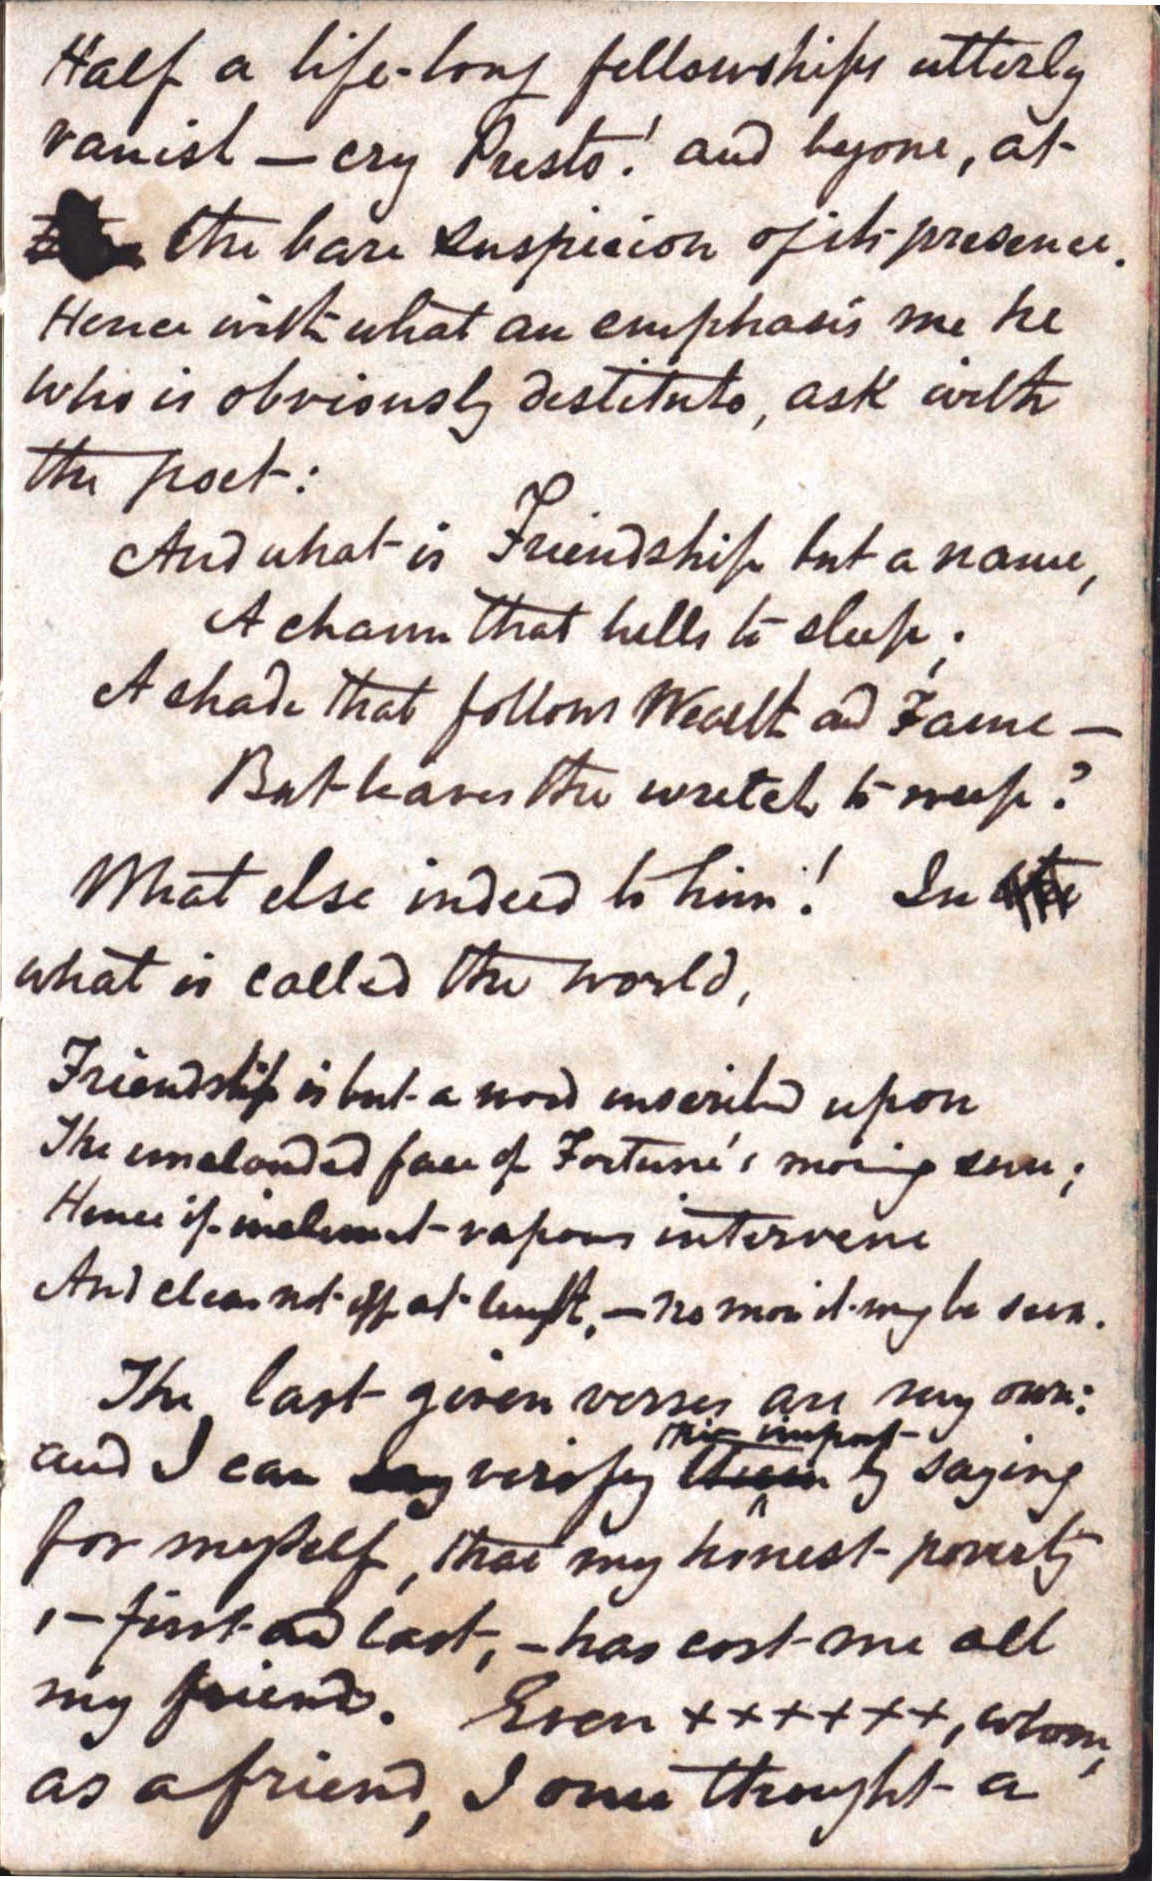 Half a life-long fellowships utterly
vanish — cry Presto! and begone, at
the bare suspicion of its presence.
Hence with what an emphasis me he
who is obviously destitute, ask with
the poet:
And what is Friendship but a name,
A charm that lulls to sleep;
A shade that follows Wealth and Fame —
But leaves the wretch to weep?
What else indeed to him! In
what is called the world,
Friendship is but a word inscribed upon
The unclouded face of Fortune's moving sun;
Hence if inclement vapours intervene
And clear not off at length, — no more it may be seen.
The last given verses are my own:
and I can verify their import by saying
for myself, that my honest poverty
, — first and last, — has cost me all
my friends. Even ××××××, whom,
as a friend, I once thought a